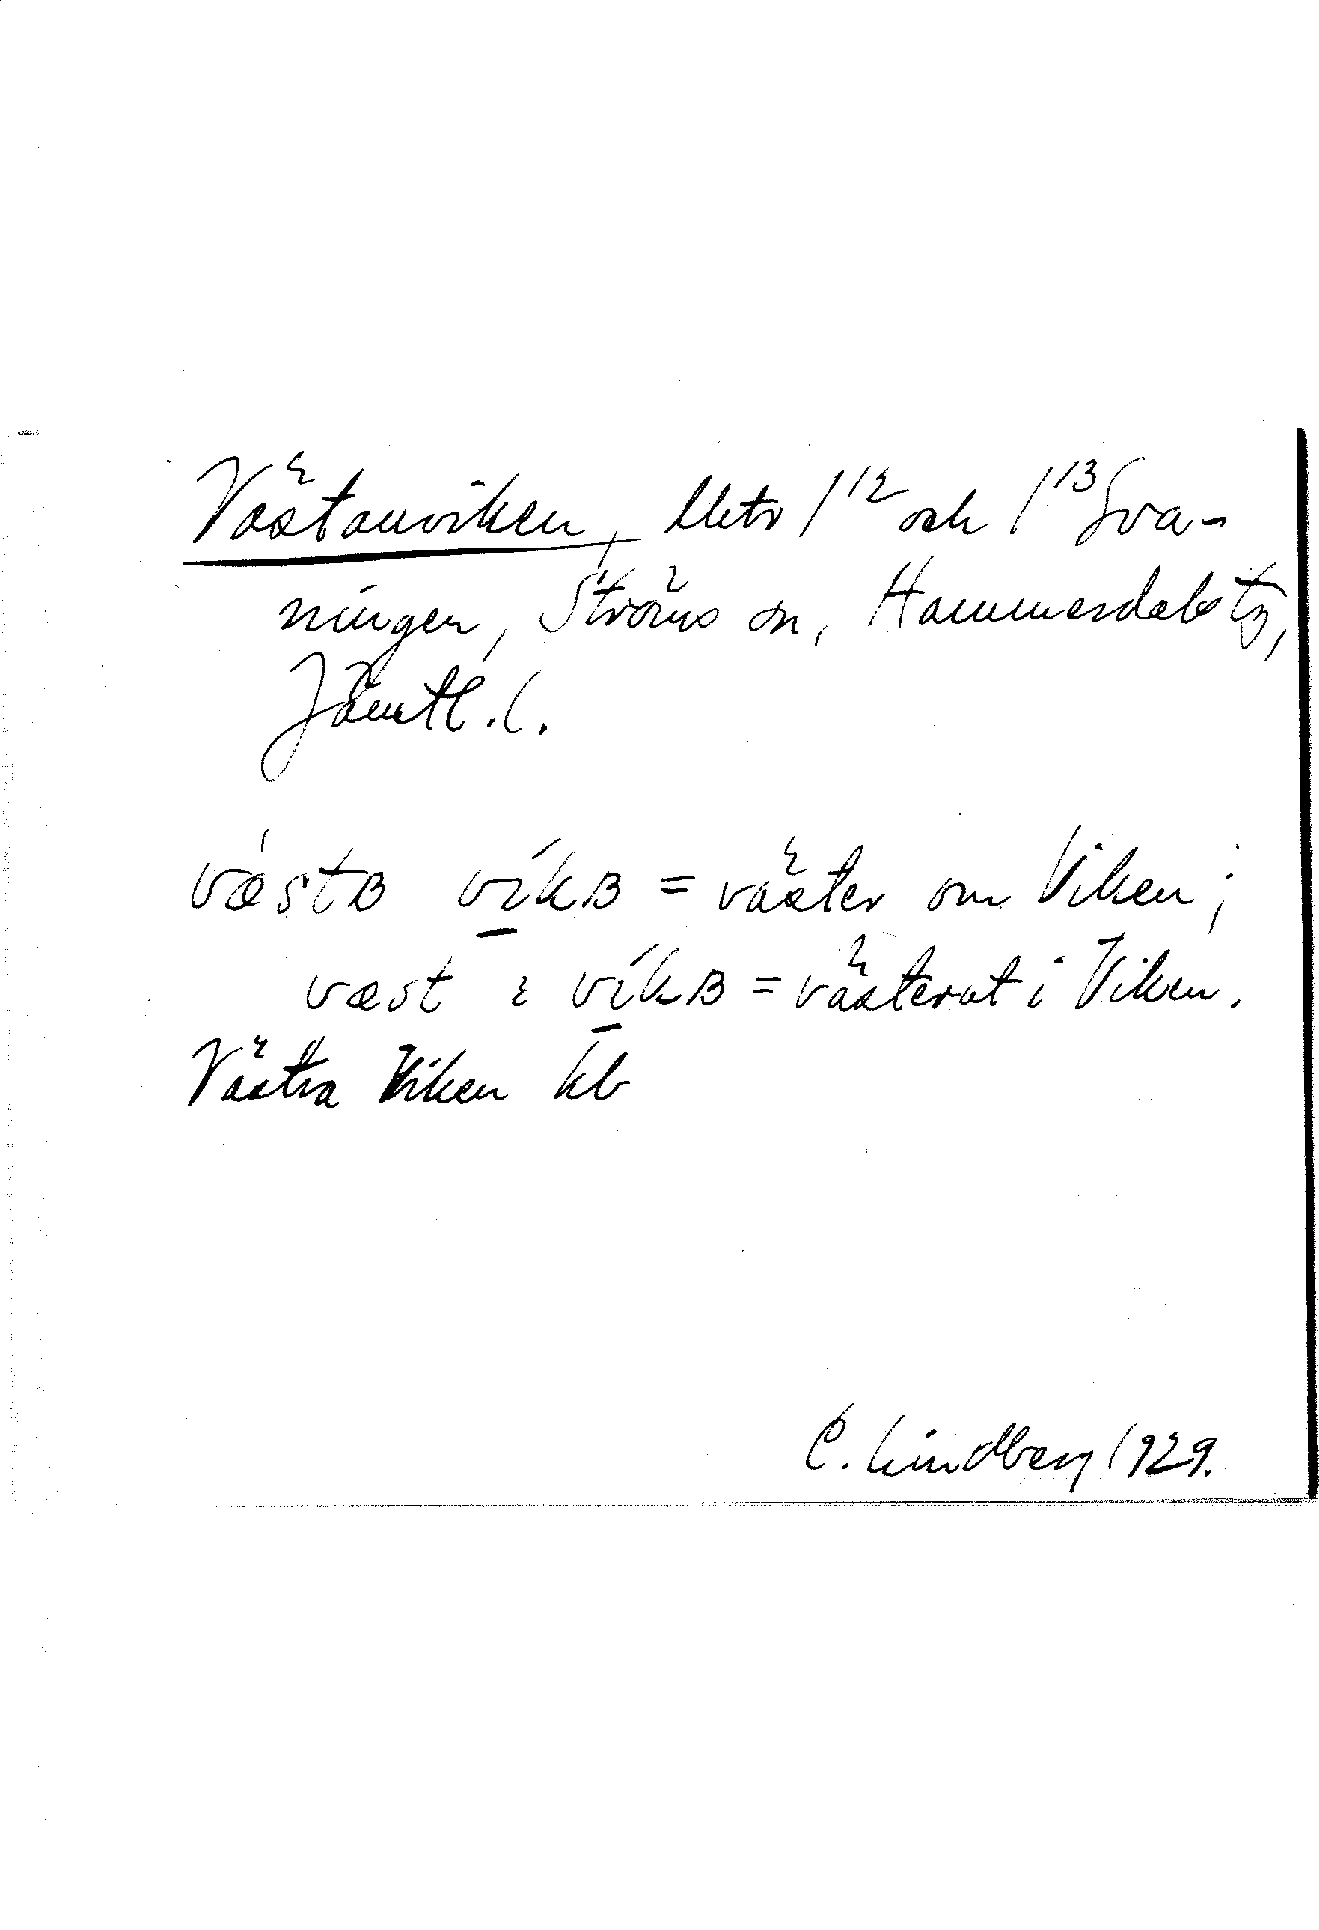 Västanviken, 1/12 och 1/13 Sva-
ningen, Ströms sn, Hammerdals tg,
Jämtl. l.
væstʙ víkʙ = väster om Viken;
væst ɩ víkʙ = västerut i Viken.
Västra Viken kb
C. Lindberg 1929.